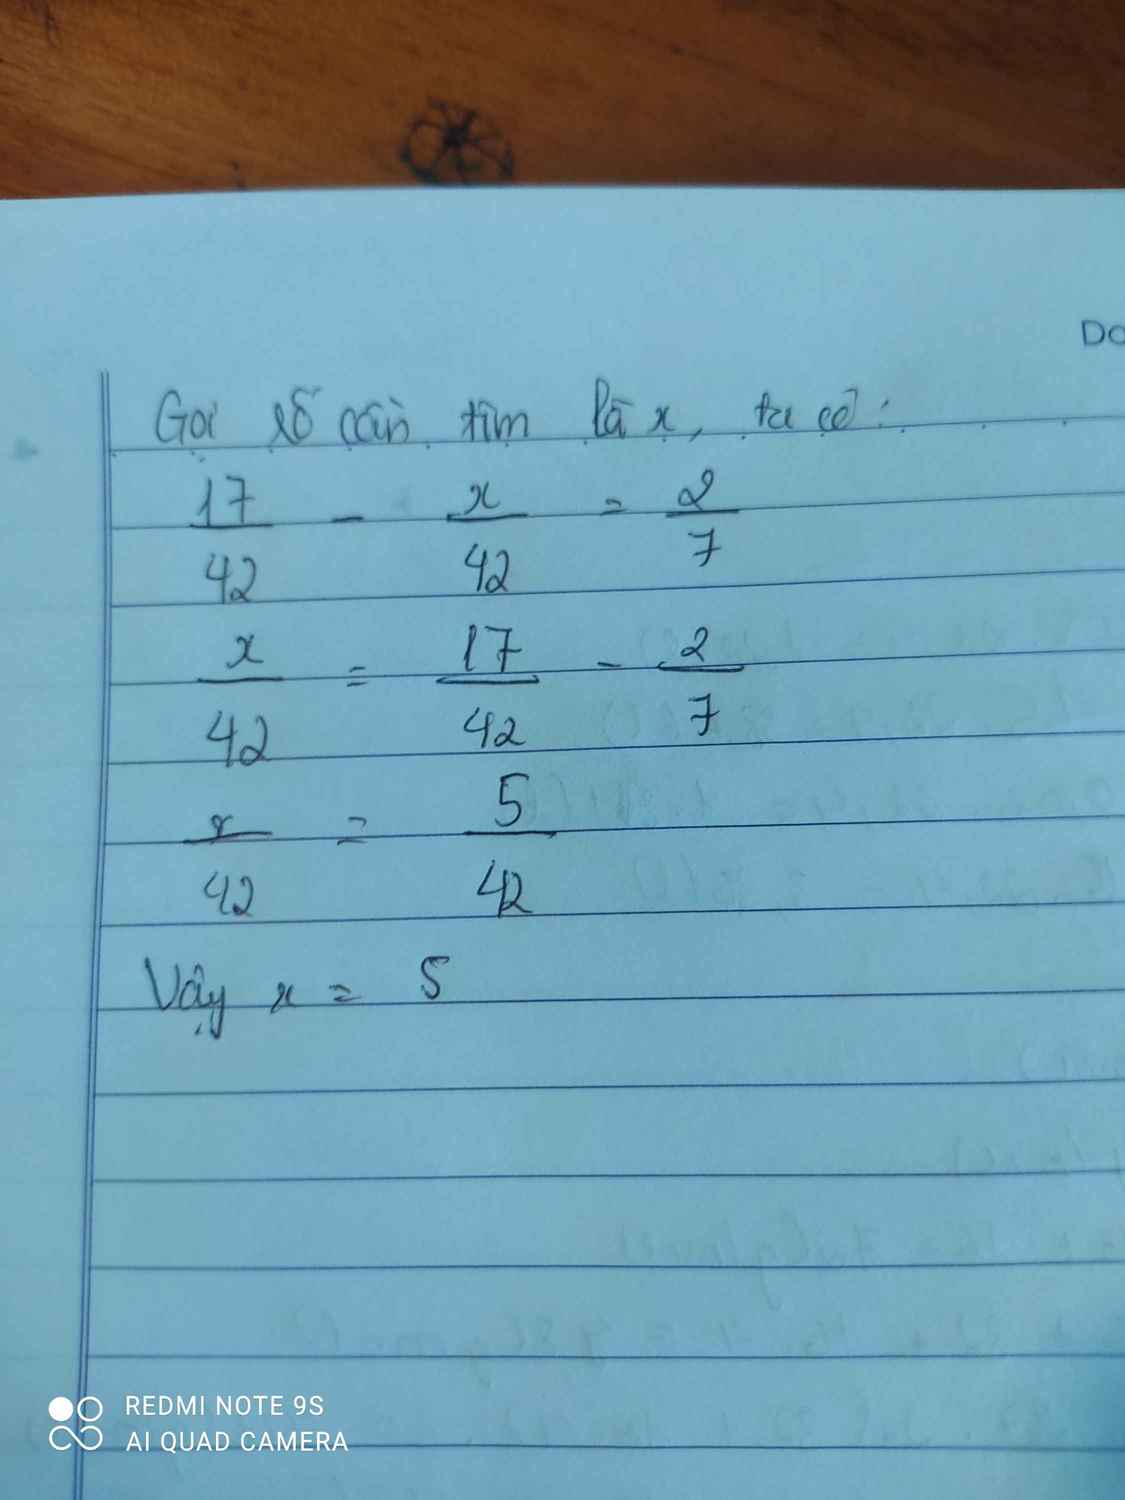 Do
Gọi số cần tìm là x, ta có:
17/42 - x/42 = 2/7
x/42 = 17/42 - 2/7
x/42 = 5/42
Vậy x = 5
REDMI NOTE 9S
AI QUAD CAMERA